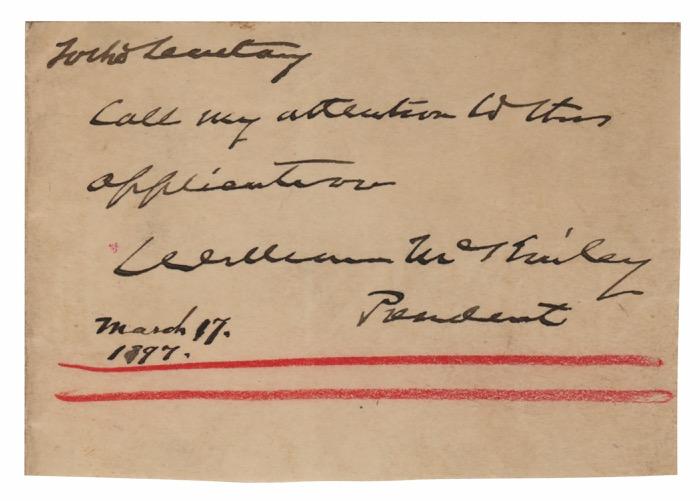 To the Secretary
Call my attention to this
application
William McKinley
President
March 17.
1897.